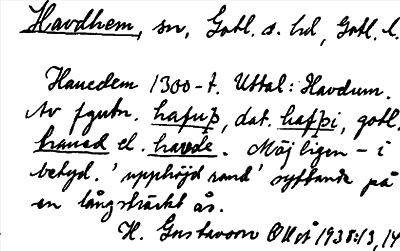 Havdhem, sn, Gotl. s. hd, Gotl. l.
Hauedem 1300-t. Uttal: Havdum.
Av fgutn. hafuþ, dat. hafþi, gotl.
havud el. havde. Möjligen - i
betyd. 'upphöjd rand' syftande på
en långsträckt ås.
H. Gustavson 1938:13, 14